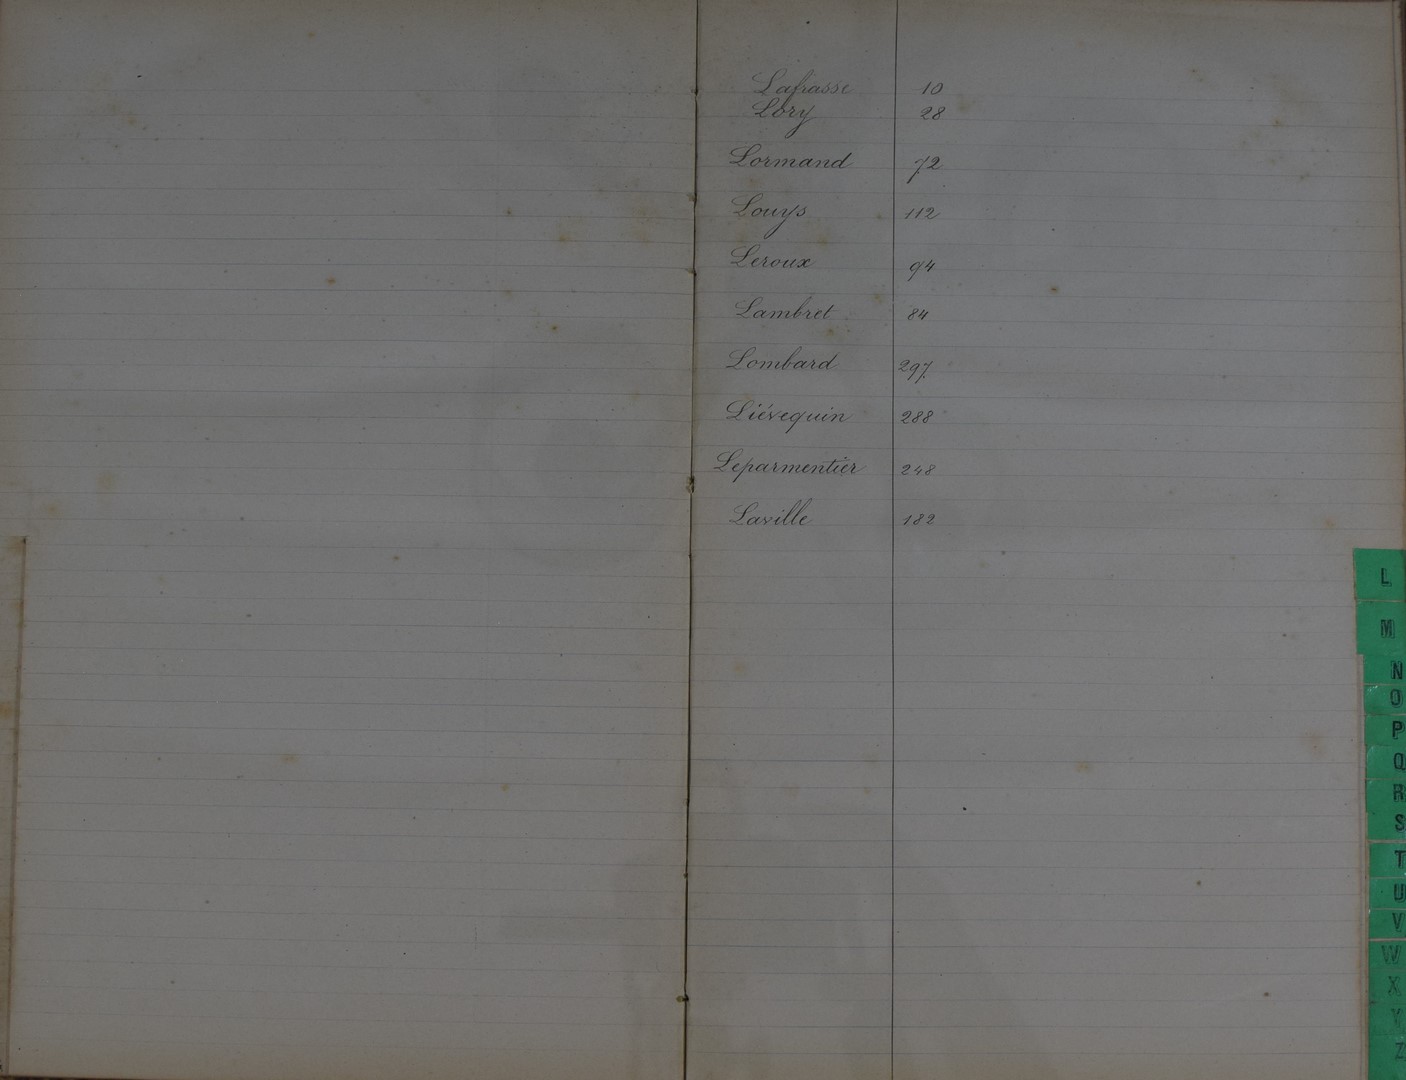 Lafrasse 10
Lory 28
Lormand 72
Louys 112
Leroux 94
Lambret 84
Lombard 297
Liévequin 288
Leparmentier 248
Laville 182
L
M
N
O
P
Q
R
S
T
U
V
W
X
Y
Z